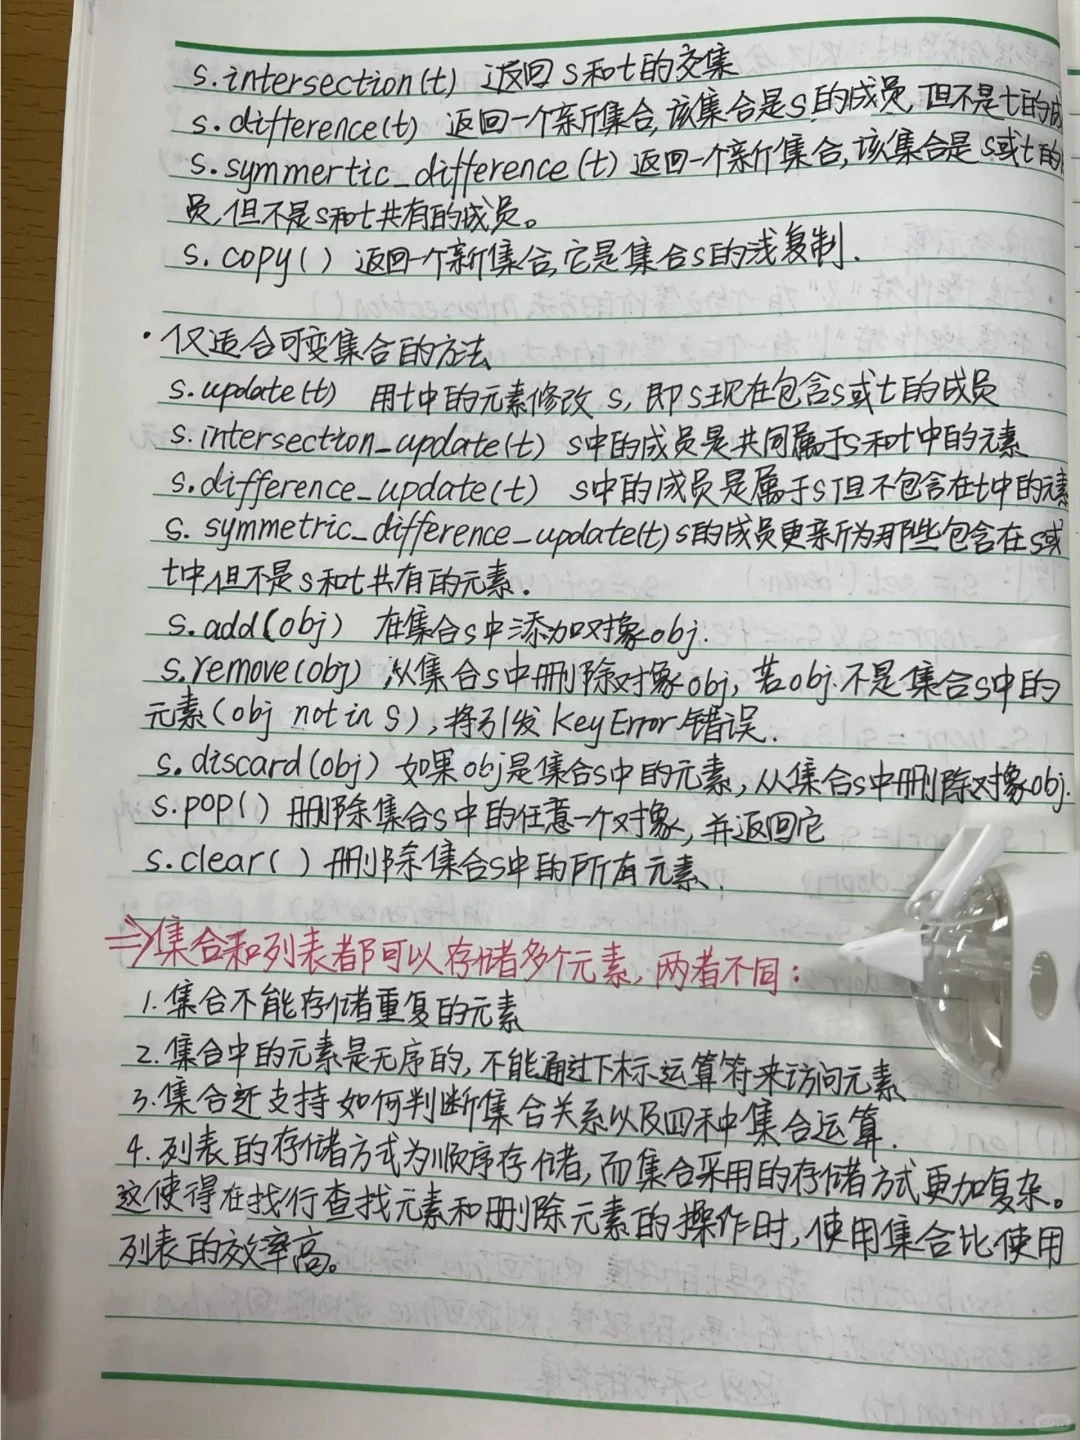 s.intersection(t) 返回s和t的交集
s.difference(t) 返回一个新集合,该集合是s的成员,但不是t的成
s.symmertic_difference(t)返回一个新集合,该集合是s或t的
员,但不是s和t共有的成员。
s.copy() 返回一个新集合,它是集合s的浅复制.
·仅适合可变集合的方法
s.update(t) 用t中的元素修改 s, 即s现在包含s或t的成员
s.intersection_update(t) s中的成员是共同属于s和t中的元素
s.difference_update(t) s中的成员是属于s但不包含在t中的元素
s.symmetric_difference_update(t)s的成员更新为那些包含在s或
t中但不是s和t共有的元素.
s.add(obj) 在集合s中添加对象obj.
s.remove(obj) 从集合s中删除对象obj, 若obj.不是集合s中的
元素(obj not in S),将引发KeyError错误.
s.discard(obj) 如果obj是集合s中的元素,从集合s中删除对象obj.
s.pop() 删除集合s中的任意一个对象,并返回它
s.clear() 删除集合s中的所有元素.
⇒集合和列表都可以存储多个元素,两者不同:
1.集合不能存储重复的元素
2.集合中的元素是无序的,不能通过下标运算符来访问元素
3.集合还支持如何判断集合关系以及四种集合运算.
4.列表的存储方式为顺序存储,而集合采用的存储方式更加复杂。
这使得在执行查找元素和删除元素的操作时,使用集合比使用
列表的效率高。